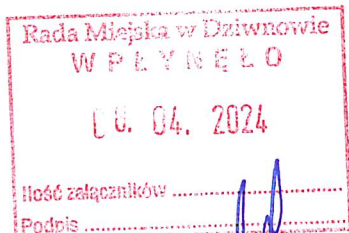 Rada Miejska w Dziwnowie
WPŁYNĘŁO
04. 2024
Ilość załączników
Podpis